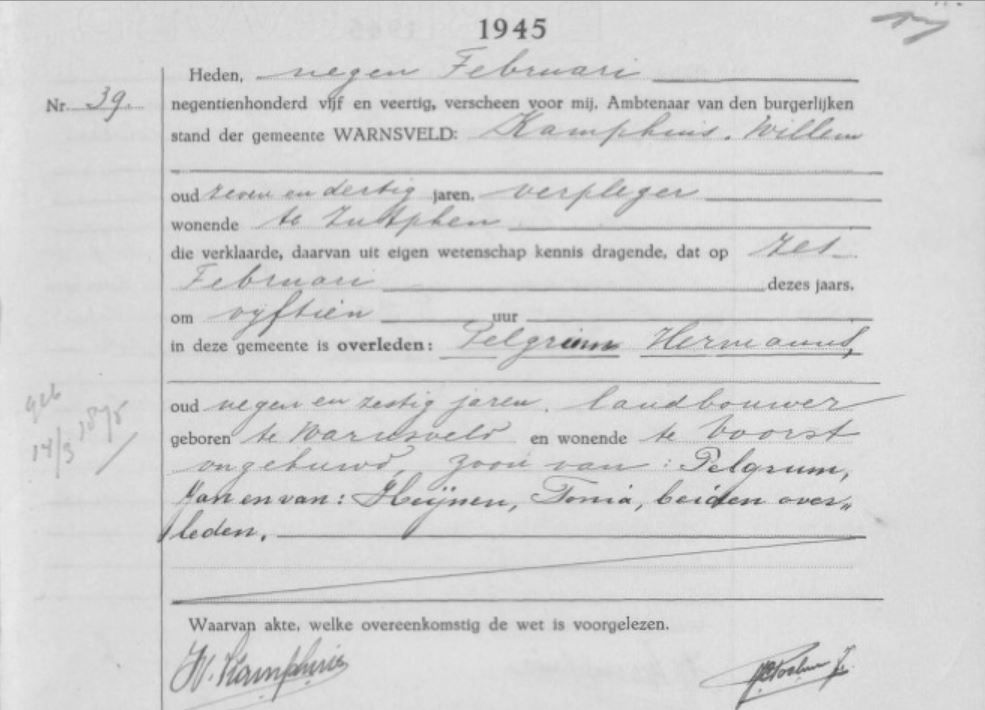 1945
Heden, negen Februari
Nr. 39.
negentienhonderd vijf en veertig, verscheen voor mij, Ambtenaar van den burgerlijken
stand der gemeente WARNSVELD: Kamphuis. Willem
oud zeven en dertig jaren, verpleger
wonende te Zutphen
die verklaarde, daarvan uit eigen wetenschap kennis dragende, dat op zes
Februari dezes jaars.
om vyftien uur
in deze gemeente is overleden: Pelgrum Hermanus,
oud negen en zestig jaren, landbouwer
geboren te Warnsveld en wonende te Voorst
ongehuwd, zoon van: Pelgrum,
Jan en van: Heijnen, Tonia, beiden over„
leden.
geb
14/3 1875
Waarvan akte, welke overeenkomstig de wet is voorgelezen.
W. Kamphuis